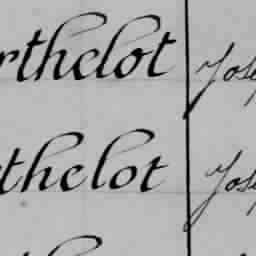 rthelot Jose
thelot Jose